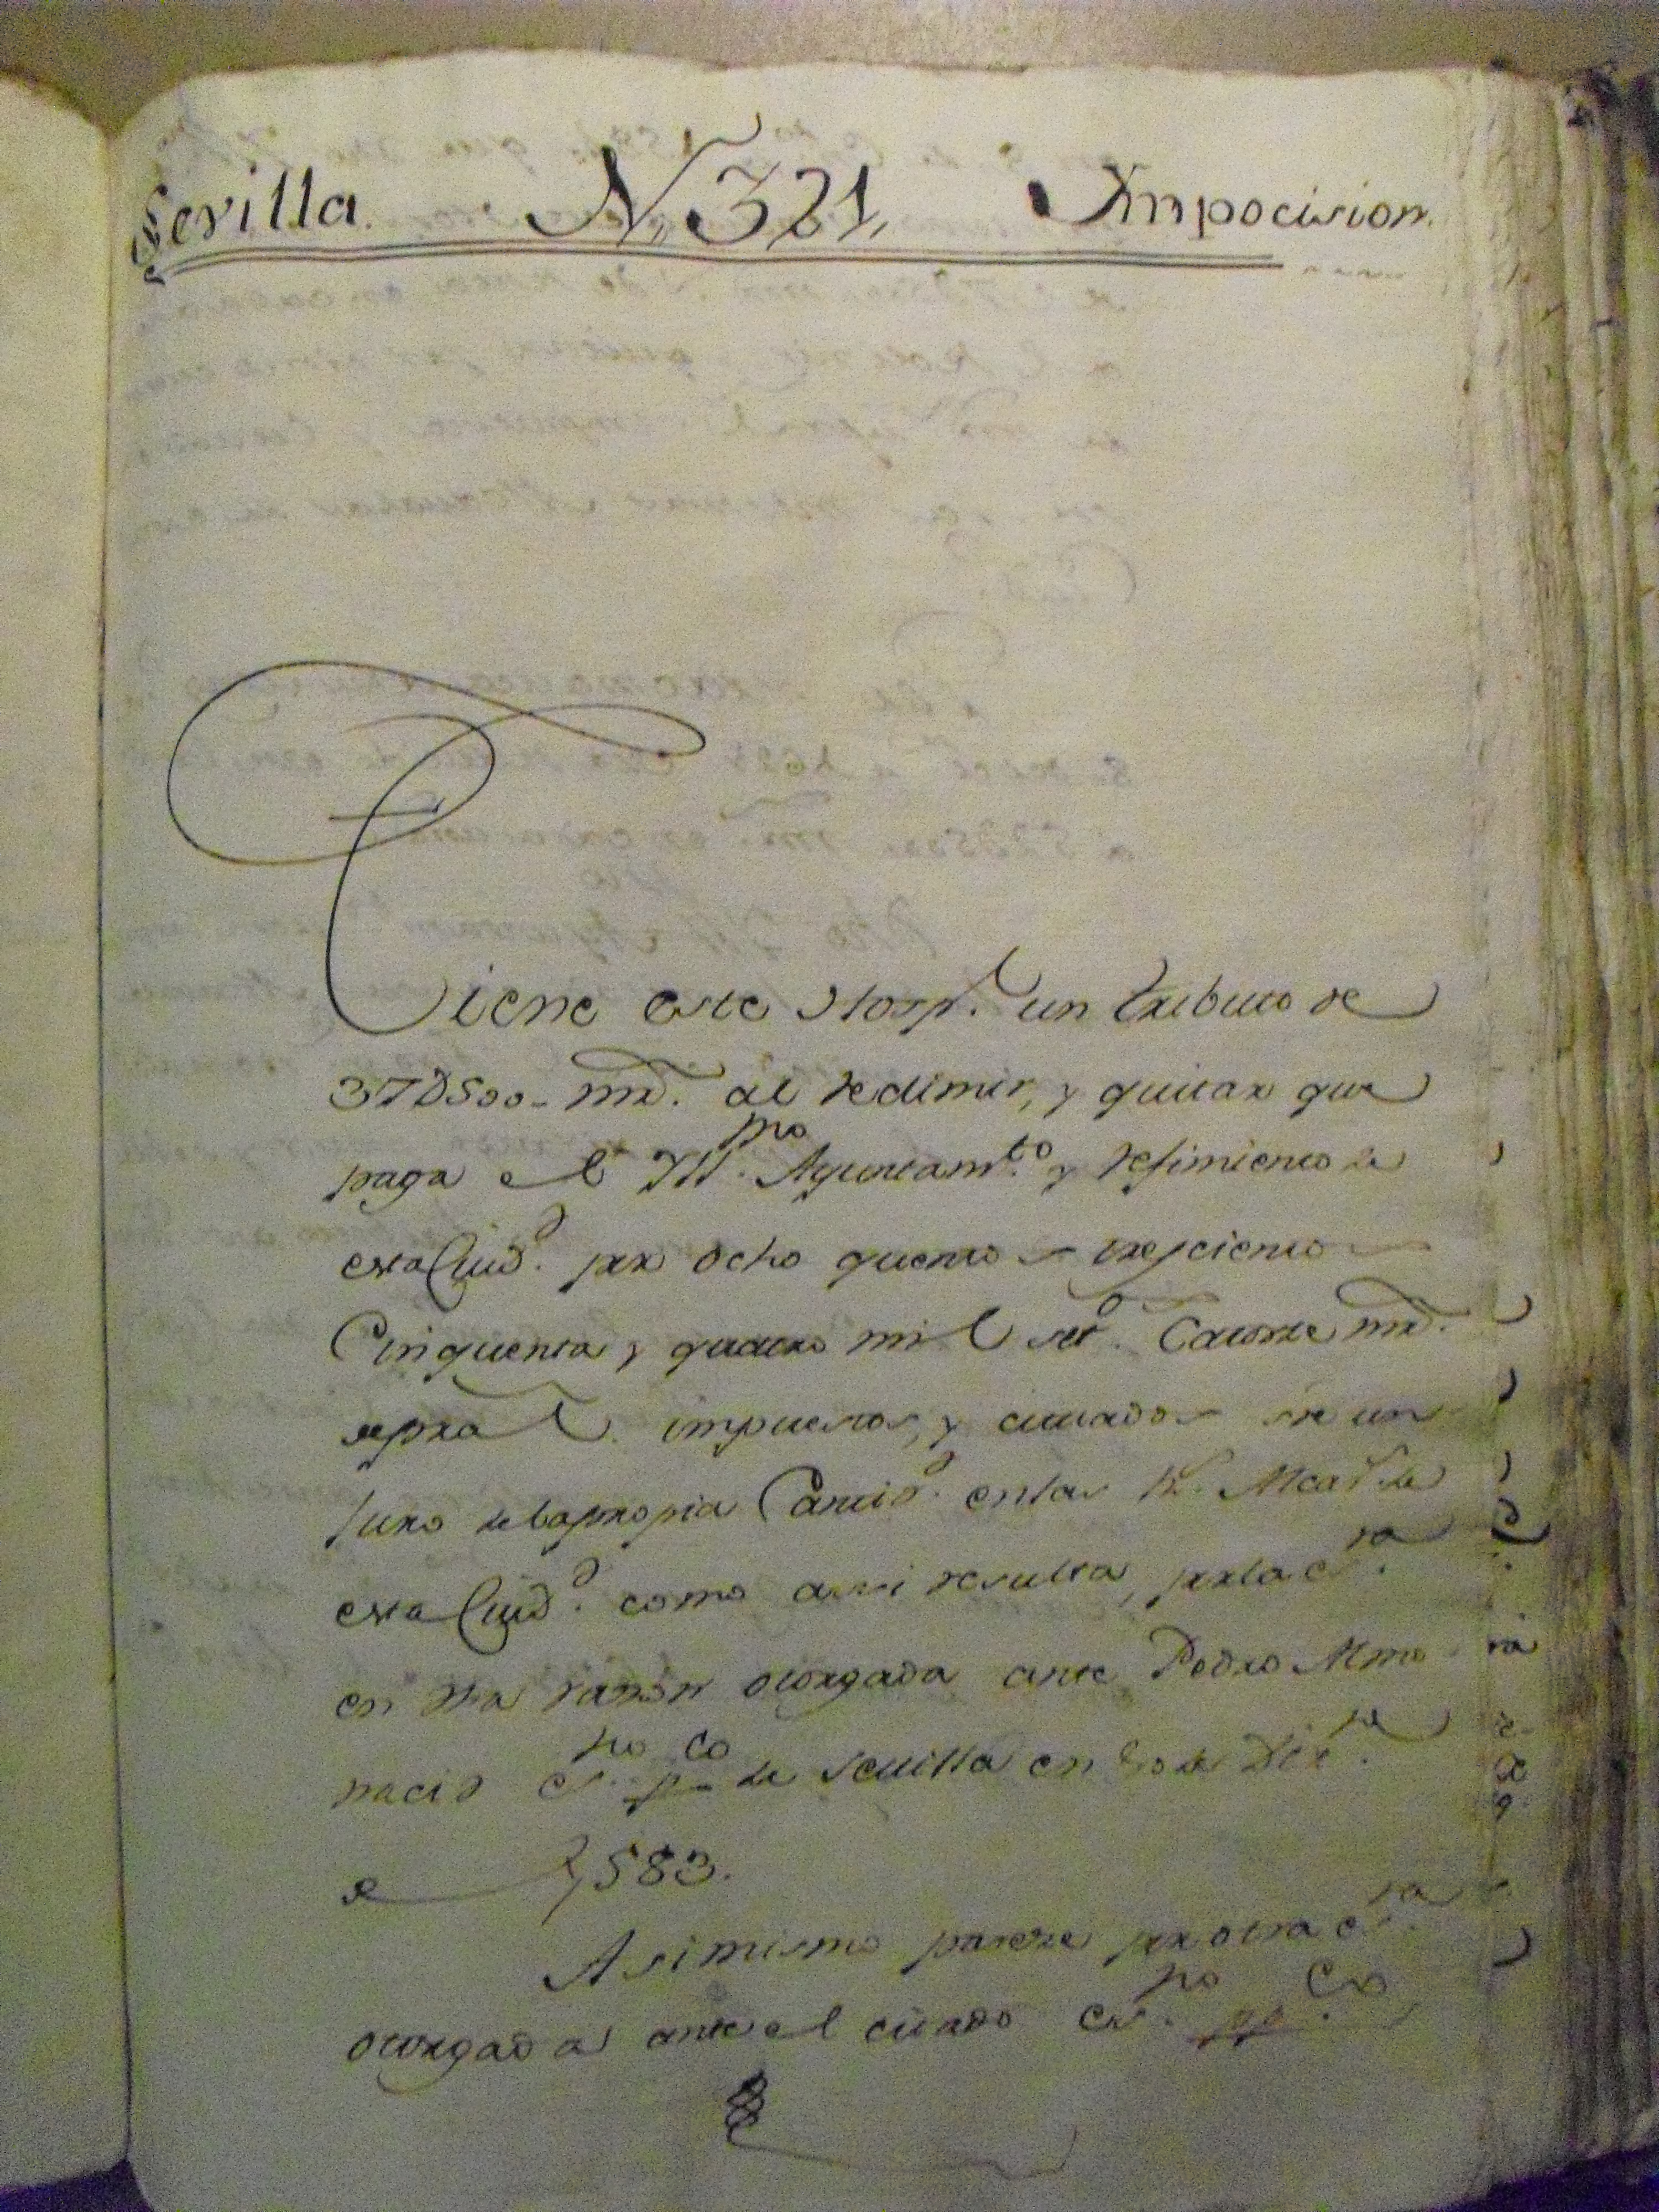 Sevilla. N. 321, Ympocision.
Tiene este Hosp.l un tributo de
37D500. mrs. al redimir, y quitar que
paga el Yll.mo Ayuntam.to y Refimiento de
esta Ciud.d por ocho quentos trescientos
Cinquenta y quatro mil set.os Catorze mrs.
de pral. impuestos, y cituados sre un
Juro de la propia Cantid.d en las R.s Alcav.s de
esta Ciud.d como assi resulta, por la es.ra
en dha razon otorgada ante Pedro Almo
nacid es.no pco de Sevilla en de Dix.re
de 1583.
Asimismo pareze por otra es.ra
otorgada ante el citado es.no pp.co